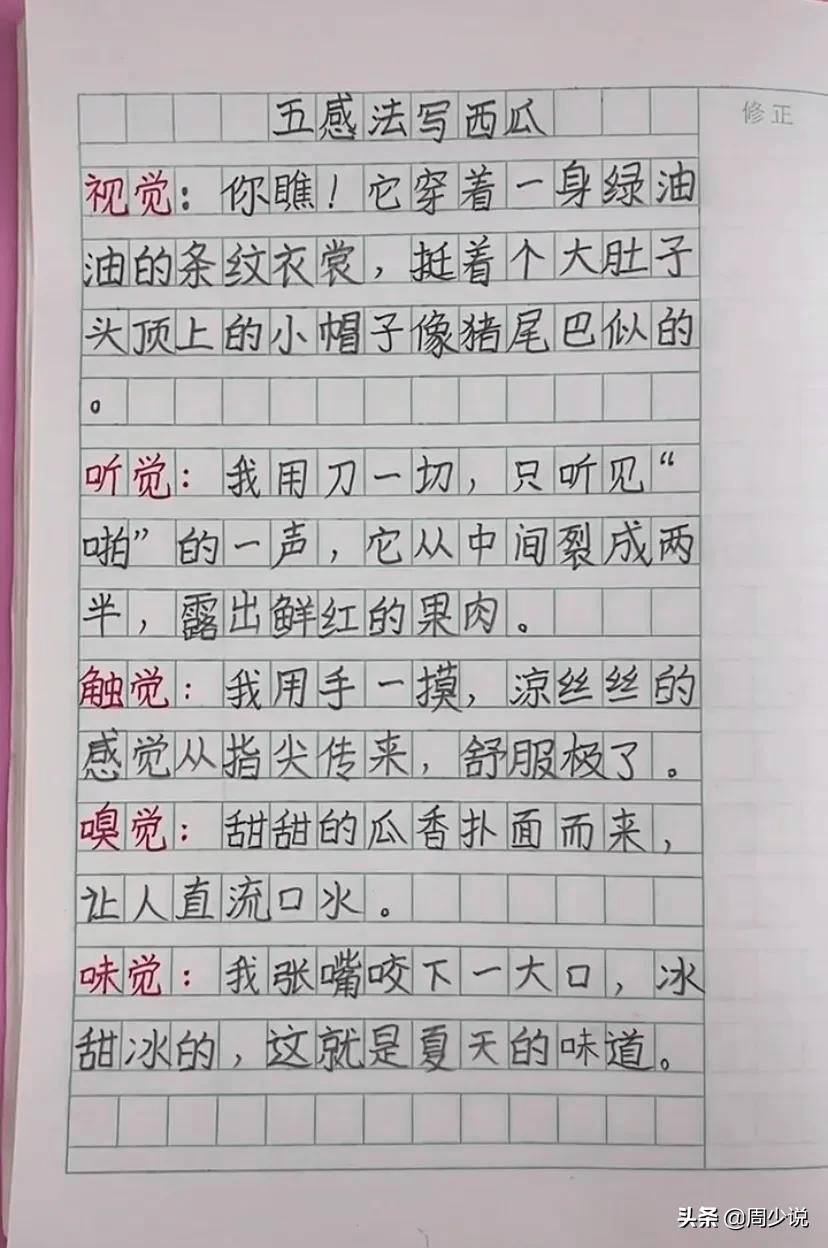 五感法写西瓜
修正
视觉：你瞧！它穿着一身绿油
油的条纹衣裳，挺着个大肚子
头顶上的小帽子像猪尾巴似的
。
听觉：我用刀一切，只听见“
啪”的一声，它从中间裂成两
半，露出鲜红的果肉。
触觉：我用手一摸，凉丝丝的
感觉从指尖传来，舒服极了。
嗅觉：甜甜的瓜香扑面而来，
让人直流口水。
味觉：我张嘴咬下一大口，冰
甜冰的，这就是夏天的味道。
头条 @周少说